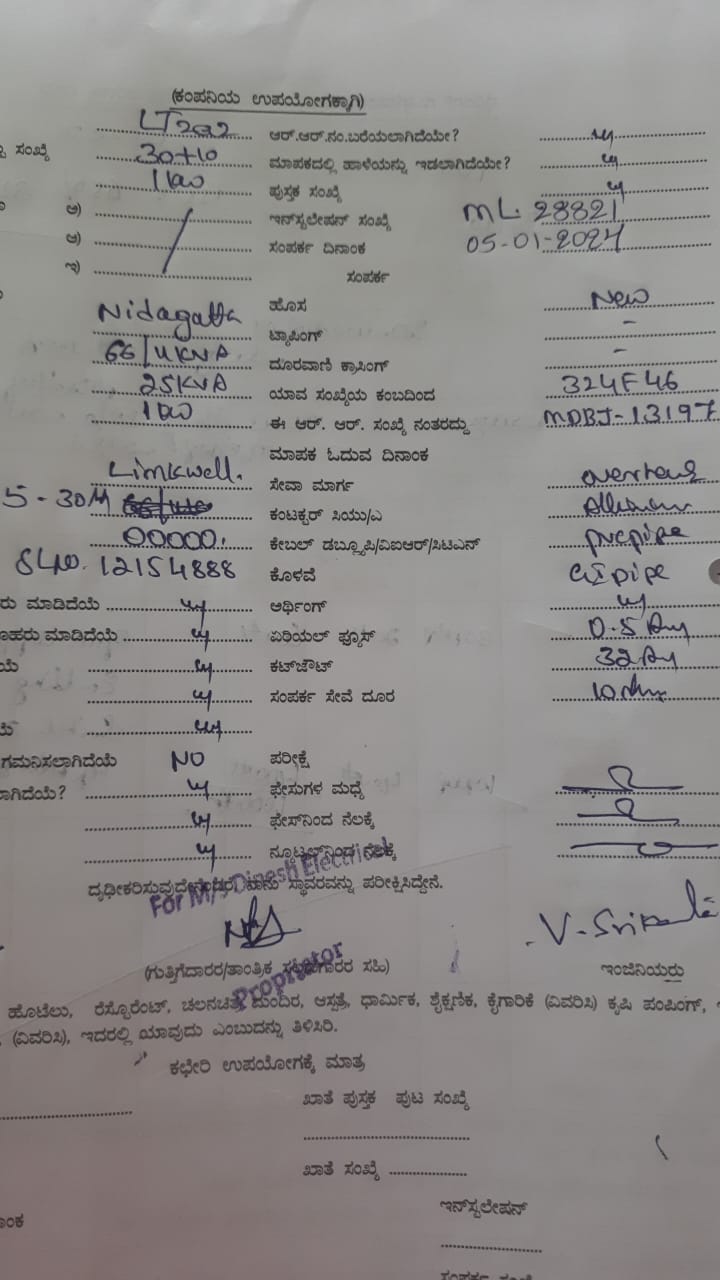 (ಕಂಪನಿಯ ಉಪಯೋಗಕ್ಕಾಗಿ)
LT2a2 ಆರ್.ಆರ್.ನಂ.ಬರೆಯಲಾಗಿದೆಯೇ?
ಸಂಖ್ಯೆ 30+10 ಮಾಪಕದಲ್ಲಿ ಹಾಳೆಯನ್ನು ಇಡಲಾಗಿದೆಯೇ?
1kw ಪುಸ್ತಕ ಸಂಖ್ಯೆ
ಅ) ಇನ್‌ಸ್ಟಲೇಷನ್ ಸಂಖ್ಯೆ ML 28821
ಆ) ಸಂಪರ್ಕ ದಿನಾಂಕ 05-01-2024
ಇ) ಸಂಪರ್ಕ
Nidagatta ಹೊಸ New
66/11KVA ಟ್ಯಾಪಿಂಗ್ -
ದೂರವಾಣಿ ಕ್ರಾಸಿಂಗ್ -
25KVA ಯಾವ ಸಂಖ್ಯೆಯ ಕಂಬದಿಂದ 324F46
1kw ಈ ಆರ್. ಆರ್. ಸಂಖ್ಯೆ ನಂತರದ್ದು MDBJ-13197
ಮಾಪಕ ಓದುವ ದಿನಾಂಕ
Linkwell. ಸೇವಾ ಮಾರ್ಗ overhead
5-30M ಕಂಟಕ್ಟರ್ ಸಿಯು/ಎ
00000. ಕೇಬಲ್ ಡಬ್ಲ್ಯೂಪಿ/ವಿಐಆರ್/ಸಿಟಿಎನ್ pvcpipe
SLNO. 12154888 ಕೊಳವೆ GI pipe
ರು ಮಾಡಿದೆಯೆ ಅರ್ಥಿಂಗ್
ಾಹರು ಮಾಡಿದೆಯೆ ಏರಿಯಲ್ ಫ್ಯೂಸ್ 0.5
ಯೆ ಕಟ್‌ಔಟ್ 32
ಸಂಪರ್ಕ ಸೇವೆ ದೂರ
ಗಮನಿಸಲಾಗಿದೆಯೆ NO ಪರೀಕ್ಷೆ
ಾಗಿದೆಯೆ? ಫೇಸುಗಳ ಮಧ್ಯೆ
ಫೇಸ್‌ನಿಂದ ನೆಲಕ್ಕೆ
ನ್ಯೂಟ್ರಲ್‌ನಿಂದ ನೆಲಕ್ಕೆ
ದೃಢೀಕರಿಸುವುದೇನೆಂದರೆ, ನಾನು ಸ್ಥಾವರವನ್ನು ಪರೀಕ್ಷಿಸಿದ್ದೇನೆ.
For M/s Dinesh Electrical
Propritor
(ಗುತ್ತಿಗೆದಾರರ/ತಾಂತ್ರಿಕ ಸಲಹೆಗಾರರ ಸಹಿ) ಇಂಜಿನಿಯರ್ರು
ಹೊಟೆಲು, ರೆಸ್ಟೊರೆಂಟ್, ಚಲನಚಿತ್ರ ಮಂದಿರ, ಆಸ್ಪತ್ರೆ, ಧಾರ್ಮಿಕ, ಶೈಕ್ಷಣಿಕ, ಕೈಗಾರಿಕೆ (ವಿವರಿಸಿ) ಕೃಷಿ ಪಂಪಿಂಗ್,
(ವಿವರಿಸಿ), ಇದರಲ್ಲಿ ಯಾವುದು ಎಂಬುದನ್ನು ತಿಳಿಸಿರಿ.
ಕಛೇರಿ ಉಪಯೋಗಕ್ಕೆ ಮಾತ್ರ
ಖಾತೆ ಪುಸ್ತಕ ಪುಟ ಸಂಖ್ಯೆ
ಖಾತೆ ಸಂಖ್ಯೆ
ಾಂಕ ಇನ್‌ಸ್ಟಲೇಷನ್
ಸಂಪರ್ಕ ಸಂಖ್ಯೆ